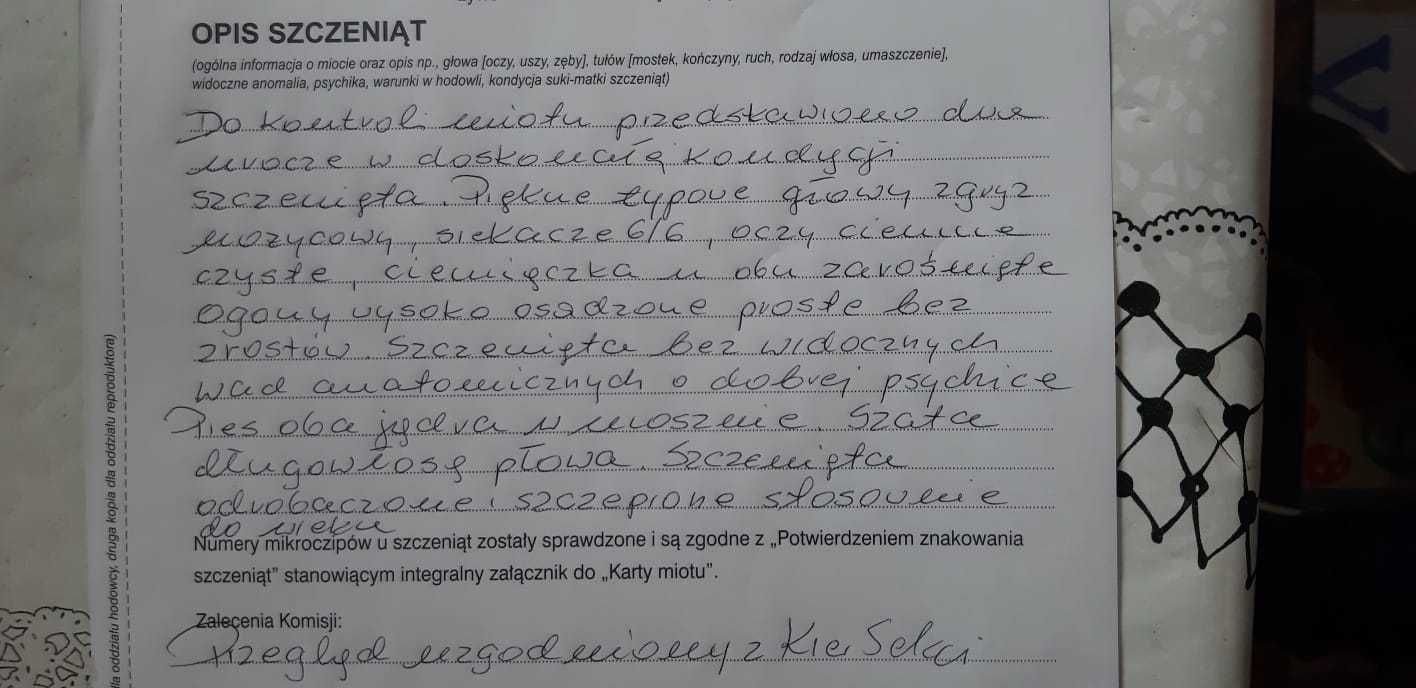 OPIS SZCZENIĄT
(ogólna informacja o miocie oraz opis np., głowa [oczy, uszy, zęby], tułów [mostek, kończyny, ruch, rodzaj włosa, umaszczenie],
widoczne anomalia, psychika, warunki w hodowli, kondycja suki-matki szczeniąt)
Do kontroli miotu przedstawiono dwa
urocze w doskonałę kondycji
szczenięta. Piękne typowe głowy zgryz
nożycowy, siekacze 6/6, oczy ciemne
czyste, ciemiączka u obu zarośnięte
Ogony wysoko osadzone proste bez
zrostów. Szczenięta bez widocznych
wad anatomicznych o dobrej psychice
Pies oba jądra w mosznie. Szata
długowłosę płowa. Szczenięta
odrobaczone i szczepione stosownie
do wieku
Numery mikroczipów u szczeniąt zostały sprawdzone i są zgodne z „Potwierdzeniem znakowania
szczeniąt" stanowiącym integralny załącznik do „Karty miotu".
Zalecenia Komisji:
Przegląd uzgodniony z Kier Sekcji
dla oddziału hodowcy, druga kopia dla oddziału reproduktora)